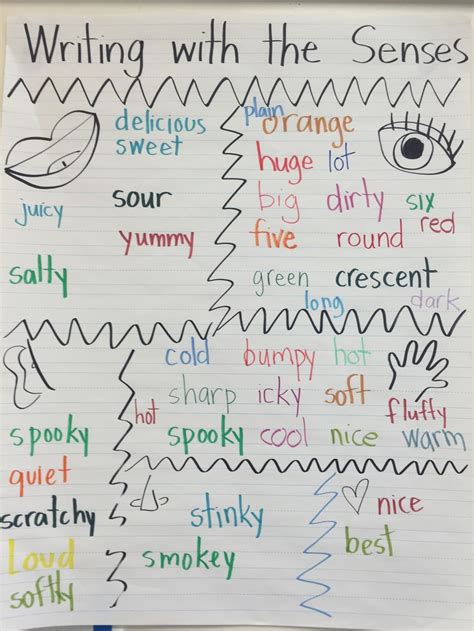 Writing with the Senses
delicious
sweet
juicy
sour
yummy
salty
plain
orange
huge lot
big dirty six
five round red
green crescent
long dark
spooky
quiet
scratchy
Loud
softly
cold bumpy hot
sharp icky soft
hot fluffy
spooky cool nice warm
stinky
smokey
nice
best